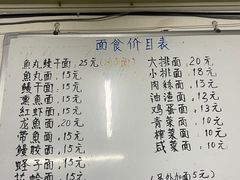 面食价目表
魚丸鳗干面.25元
魚丸面.15元
鳗干面.15元
熏魚面.15元
红虾面.15元
龙魚面.20元
带魚面.15元
鳗胶面.15元
蛏子面.15元
花蛤面.15元
大排面.20元
小排面.18元
肉絲面.13元
油渣面.13元
鸡蛋面.13元
青菜面.10元
榨菜面.10元
咸菜面.10元
面5元)